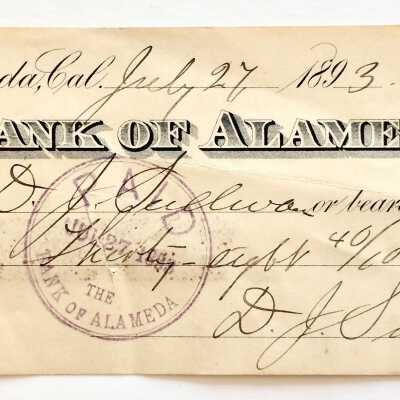 da, Cal. July 27 1893
BANK OF ALAME
D. J. Sullivan or bear
Thirty-eight 40/10
D. J. S
PAID
JUL 27 1893
THE
BANK OF ALAMEDA